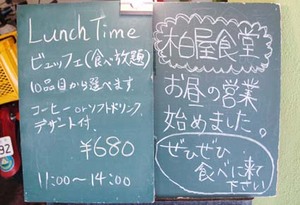 Lunch Time
ビュッフェ(食べ放題)
10品目から選べます
コーヒー orソフトドリンク
デザート付.
¥680
11:00～14:00
柏屋食堂
お昼の営業
始めました。
ぜひぜひ
食べに来て
下さい